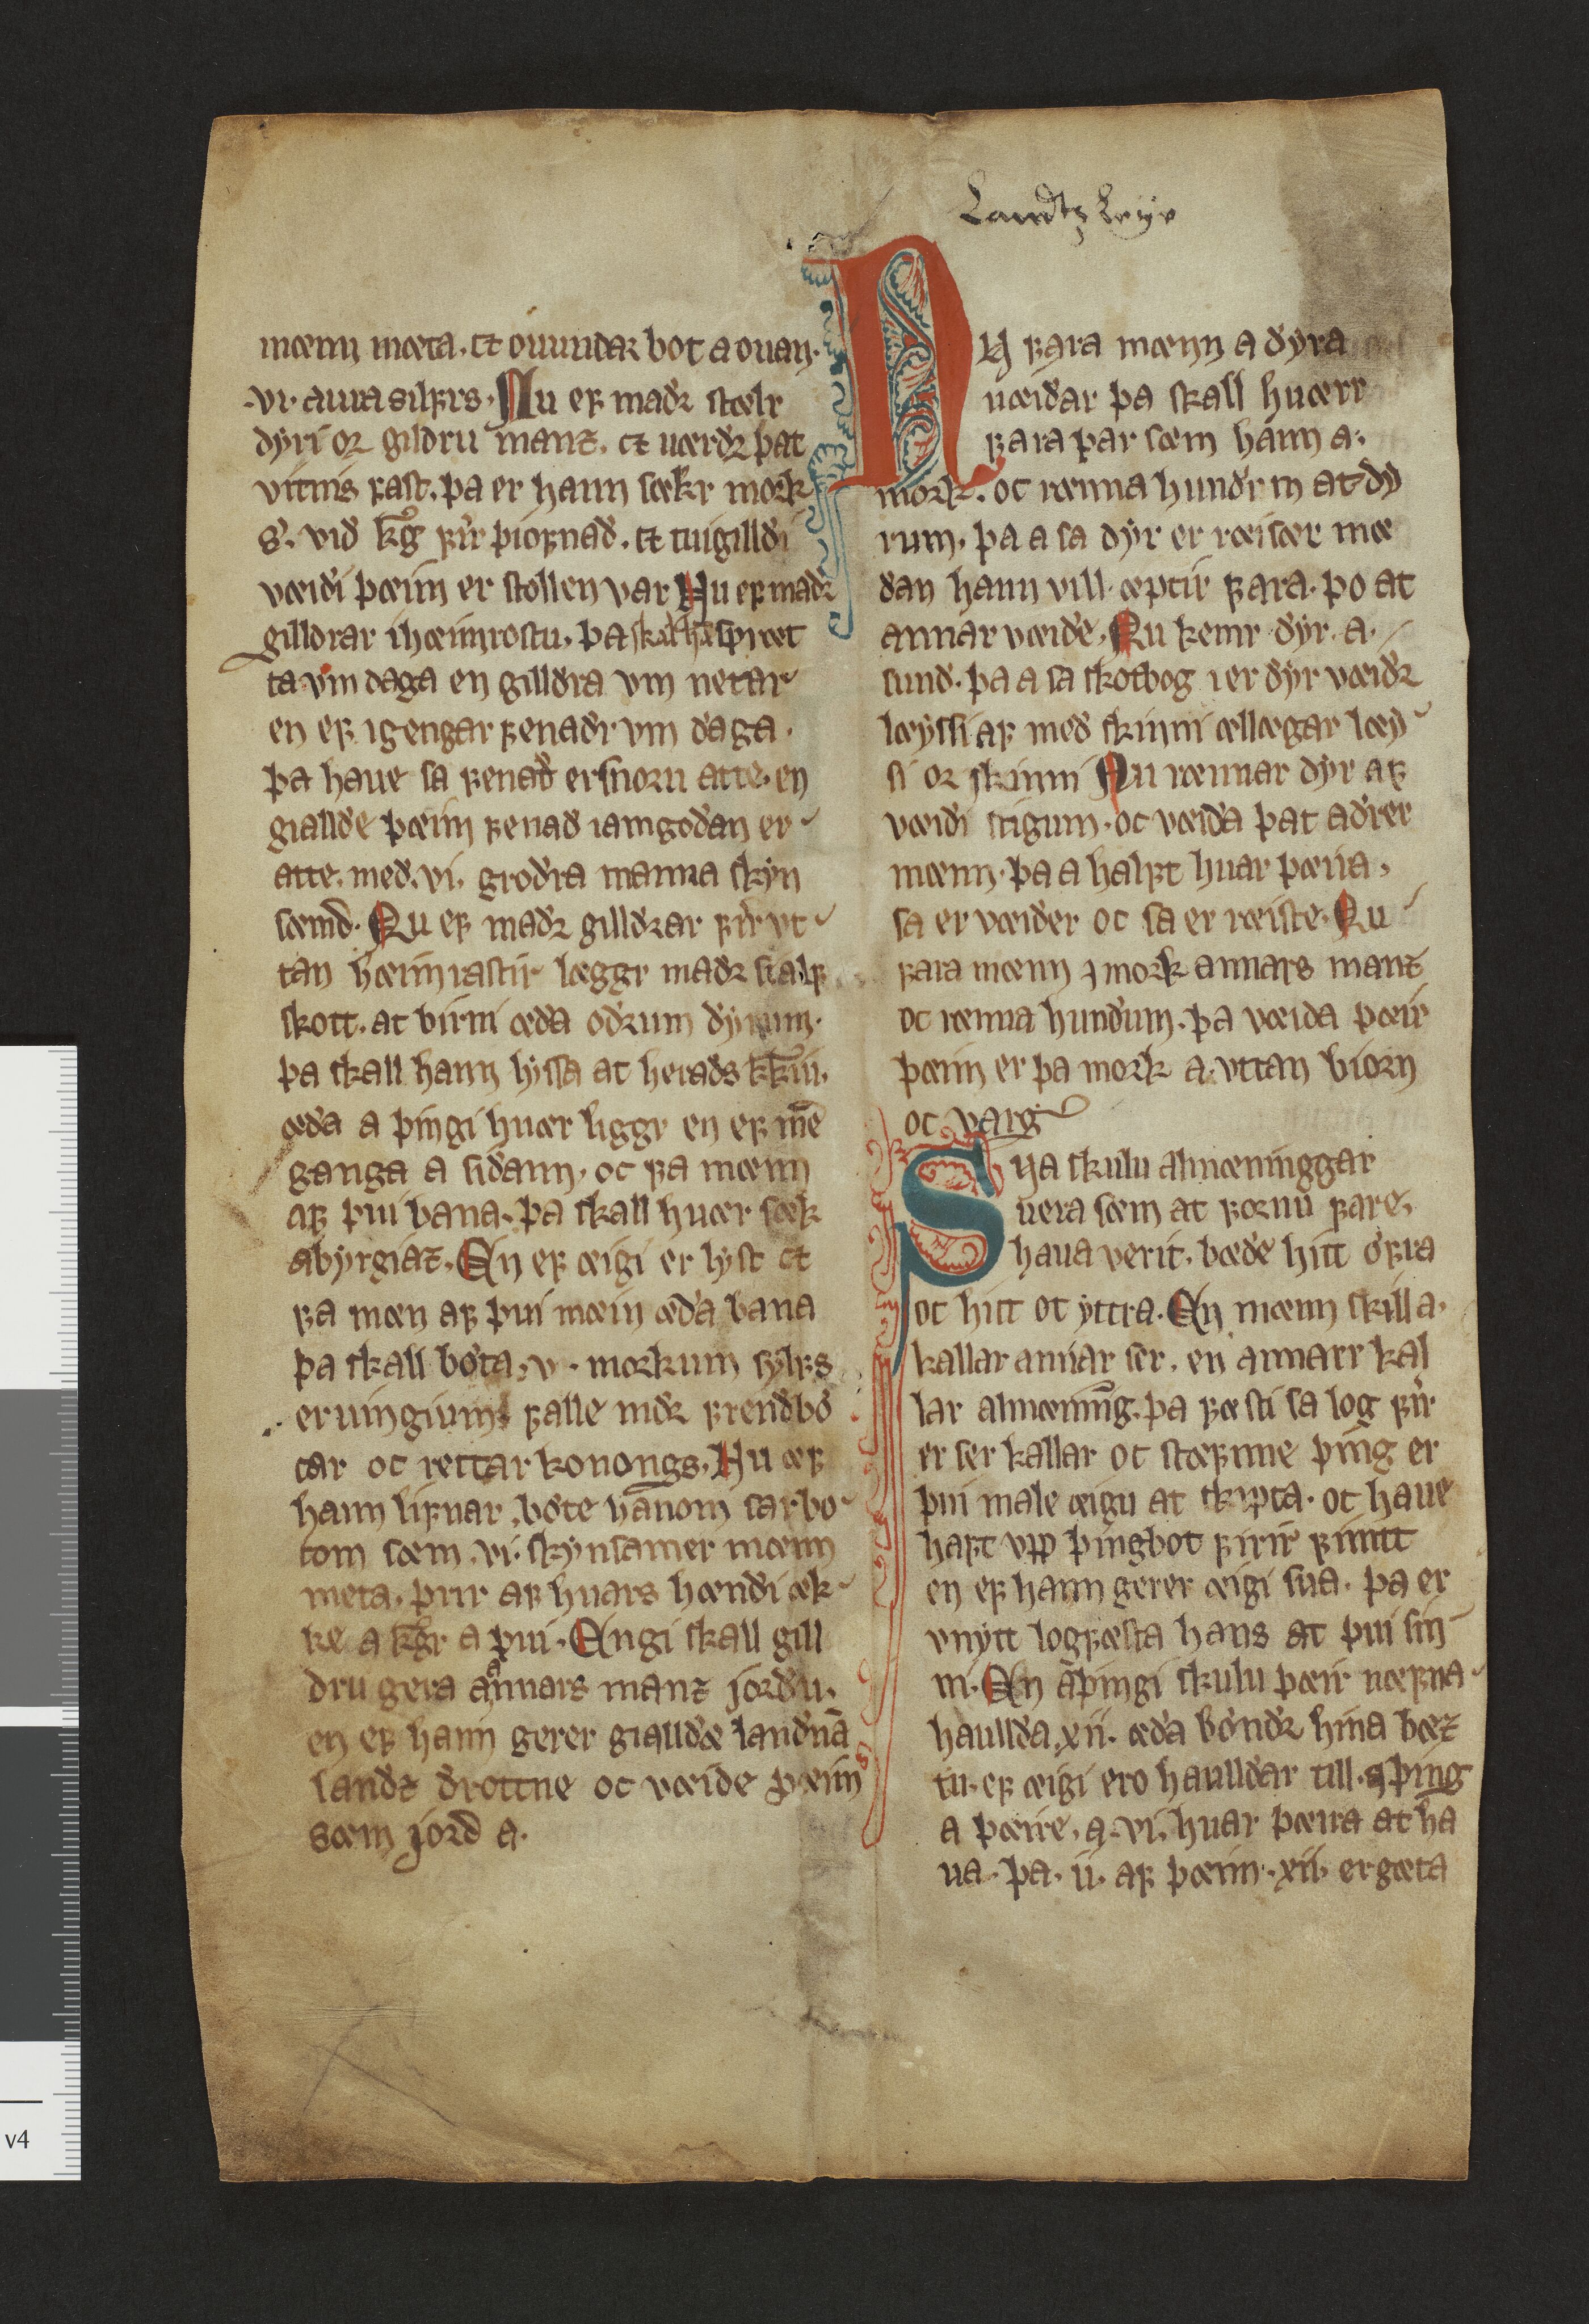 Landtz Leye
mænn mæta. et ouundar bot a ouan.
.vi. aura silfrs. Nu ef madr stælr
dyri or gildru manz. et uærdr þat
vitnis fast. þa er hann sækr mork
s. vid kg firir þiofnad. et tuigilldi
væidi þæim er stollen var Nu ef madr
gilldrar i hæimrostu. þa skal ha spræt
ta vm daga en gilldra vm netar
en ef i gengar fenadr vm daga.
þa haue sa fenad er snoru atte. en
giallde þæim fenad iamgodan er
atte. med. vi. grodra manna skyn
sæmd. Nu ef madr gilldrar firir vt
tan hæimrastir læggr madr sialf
skott. at birni æda odrum dyrum.
þa skall hann lyssa at herads kkiu.
æda a þingi huær liggr en ef me
ganga a sidann. oc fa mænn
af þui bana. þa skall huær sæk
abyrgiaz. En ef æigi er lyst et
fa mæn af þui mæin æda bana
þa skall bota. v. morkum sylfs
eruingium falle nidr frendbo
tar oc rettar konongs. Nu æf
hann lifnar. bote hanom sarbo
tom sæm .vi. skynsamer mænn
meta. þrir af huars hændi æk
ke a kgr a þui. Engi skall gill
dru gera a annars manz jordu.
en ef hann gerer gialldæ landna
landz drottne oc væide þæim
sæm jord a.
NV fara mænn a dyra
uæidar þa skall huærr
fara þar sæm hann a
mork. oc rænna hundr m at dy
rum. þa a sa dyr er ræisær mæ
dan hann vill æptir fara. þo at
annar væide. Nu kemr dyr. a.
sund. þa a sa skotbog i er dyr væidr
læyssi af med skinni ællægar læy
si or skinni Nu rænnar dyr af
væidi stigum. oc væida þat adrer
mænn. þa a halft huar þæira.
sa er væider oc sa er ræiste. Nu
fara mænn i mork annars manz
oc rænna hundum. þa væida þæir
þæim er þa mork a. vttan biorn
oc varg
SVa skulu almænninggar
uera sæm at fornu fare.
haua verit. bæde hitt ofra
oc hitt ot yttra. En mænn skill a.
kallar annar ser. en annarr kal
lar almæning. þa fæsti sa log firir
er ser kallar oc stæfnne þing er
þui male æigu at skipta. oc haue
haft vpp þingbot firir fimtt
en ef hann gerer æigi sua. þa er
vnytt logfæsta hans at þui sin
ni. En a þingi skulu þæir næfna
haullda xii. æda bondr hina bæz
tu. ef æigi ero haulldar till. a þing
a þæire. a. vi. huar þæira at ha
ua. þa. ii. af þæim. xii. er gæta